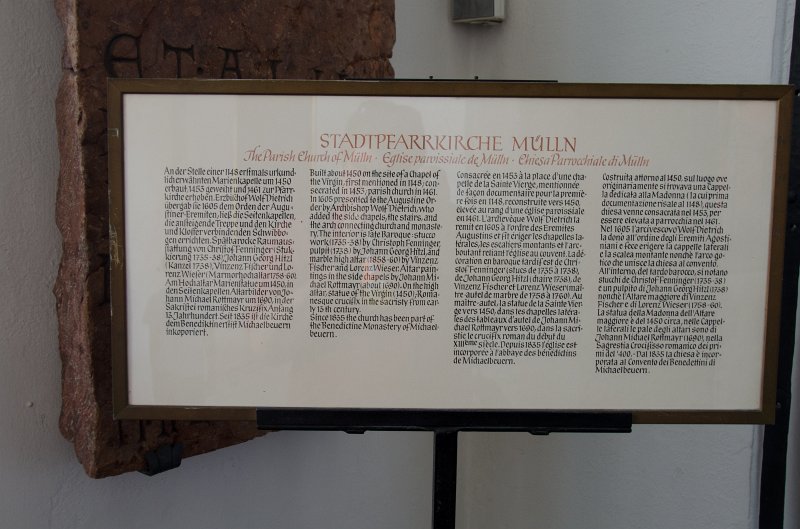 ET·A
STADTPFARRKIRCHE MÜLLN
The Parish Church of Mülln · Eglise paroissiale de Mülln · Chiesa Parrocchiale di Mülln
An der Stelle einer 1148 erstmals urkund-
lich erwähnten Marienkapelle um 1450
erbaut, 1453 geweiht und 1461 zur Pfarr-
kirche erhoben. Erzbischof Wolf Dietrich
übergab sie 1605 dem Orden der Augu-
stiner-Eremiten, ließ die Seitenkapellen,
die ansteigende Treppe und den Kirche
und Kloster verbindenden Schwibbo-
gen errichten. Spätbarocke Raumaus-
stattung von Christof Fenninger (Stuk-
kierung 1735-38), Johann Georg Hitzl
(Kanzel 1738), Vinzenz Fischer und Lo-
renz Wieser (Marmorhochaltar 1758-60).
Am Hochaltar Marienstatue um 1450, in
den Seitenkapellen Altarbilder von Jo-
hann Michael Rottmayr um 1690, in der
Sakristei romanisches Kruzifix Anfang
13. Jahrhundert. Seit 1835 ist die Kirche
dem Benediktinerstift Michaelbeuern
inkorporiert.
Built about 1450 on the site of a Chapel of
the Virgin, first mentioned in 1148; con-
secrated in 1453, parish church in 1461.
In 1605 presented to the Augustine Or-
der by Archbishop Wolf Dietrich, who
added the side chapels, the stairs, and
the arch connecting church and monaste-
ry. The interior is late Baroque - stucco
work (1735-38) by Christoph Fenninger,
pulpit (1738) by Johann Georg Hitzl, and
marble high altar (1858-60) by Vinzenz
Fischer and Lorenz Wieser. Altar pain-
tings in the side chapels by Johann Mi-
chael Rottmayr (about 1690). On the high
altar, statue of the Virgin (1450); Roma-
nesque crucifix in the sacristy from ear-
ly 13th century.
Since 1835 the church has been part of
the Benedictine Monastery of Michael-
beuern.
Consacrée en 1453 à la place d'une cha-
pelle de la Sainte Vierge, mentionnée
de façon documentaire pour la premiè-
re fois en 1148, reconstruite vers 1450,
élevée au rang d'une église paroissiale
en 1461. L'archevêque Wolf Dietrich la
remit en 1605 à l'ordre des Eremites
Augustins et fit ériger les chapelles la-
térales, les escaliers montants et l'arc-
boutant reliant l'église au couvent. La dé-
coration en baroque tardif est de Chri-
stof Fenninger (stucs de 1735 à 1738),
de Johann Georg Hitzl (chaire 1738), de
Vinzenz Fischer et Lorenz Wieser (maî-
tre autel de marbre de 1758 à 1760). Au
maître-autel, la statue de la Sainte Vier-
ge vers 1450, dans les chapelles latéra-
les des tableaux d'autel de Johann Mi-
chael Rottmayr vers 1690, dans la sacri-
stie le crucifix roman du début du
XIIIème siècle. Depuis 1835 l'église est
incorporée à l'abbaye des bénédictins
de Michaelbeuern.
Costruita attorno al 1450, sul luogo ove
originariamente si trovava una Cappel-
la dedicata alla Madonna (la cui prima
documentazione risale al 1148), questa
chiesa venne consacrata nel 1453, per
essere elevata a parrocchia nel 1461.
Nel 1605 l'arcivescovo Wolf Dietrich
la donò all'ordine degli Eremiti Agosti-
niani e fece erigere la cappelle laterali
e la scalea montante nonchè l'arco go-
tico che unisce la chiesa al convento.
All'interno, del tardo barocco, si notano
stucchi di Christof Fenninger (1735-38)
e un pulpito di Johann Georg Hitzl (1738)
nonchè l'Altare maggiore di Vinzenz
Fischer e di Lorenz Wieser (1758-60).
La statua della Madonna dell'Altare
maggiore è del 1450 circa, nelle Cappel-
le laterali le pale degli altari sono di
Johann Michael Rottmayr (1690), nella
Sagrestia Crocifisso romanico dei pri-
mi del '400. - Dal 1835 la chiesa è incor-
porata al Convento dei Benedettini di
Michaelbeuern.